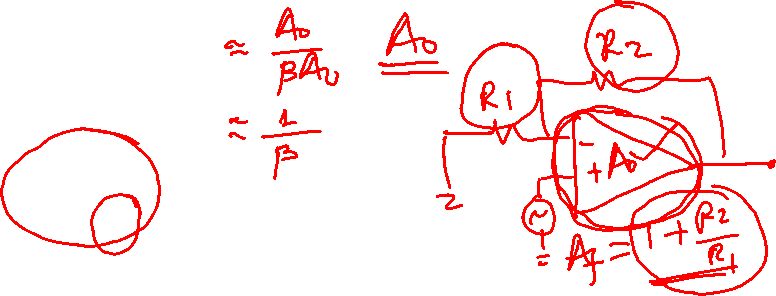 ≈ A₀/βA₀ A₀
≈ 1/β
R1 R2
- + A₀
~
= A_f = 1 + R2/R1